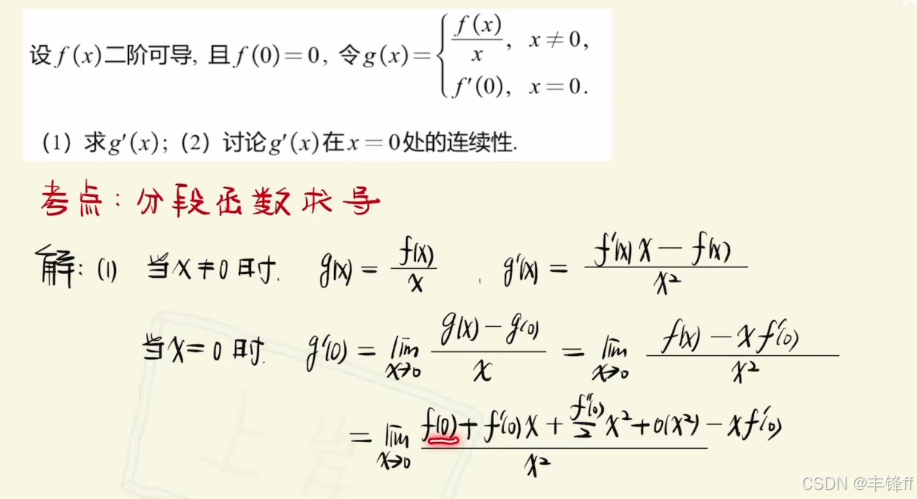 设 f(x)二阶可导, 且 f(0)=0, 令g(x)={ f(x)/x, x≠0,
f′(0), x=0.
(1) 求g′(x); (2) 讨论g′(x)在x=0处的连续性.
考点: 分段函数求导
解: (1) 当x≠0时. g(x) = f(x)/x . g′(x) = (f′(x)x − f(x))/x²
当x=0时. g′(0) = lim x→0 (g(x) − g(0))/x = lim x→0 (f(x) − xf′(0))/x²
= lim x→0 (f(0) + f′(0)x + f″(0)/2 x² + o(x²) − xf′(0))/x²
上岸
CSDN @丰锋ff